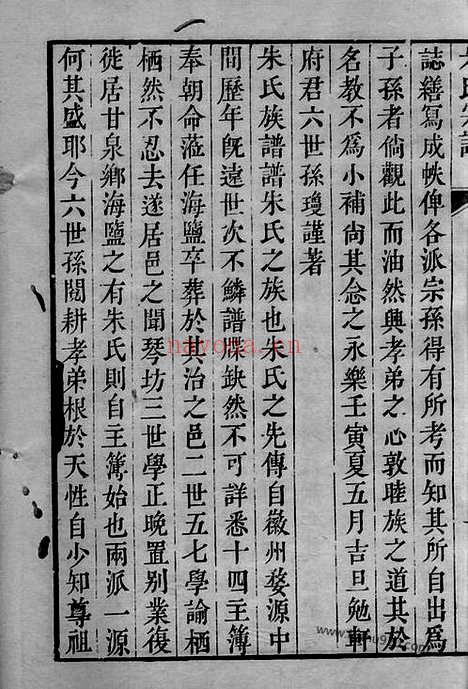 誌繕寫成帙俾各派宗孫得有所考而知其所自出爲
子孫者倘觀此而油然興孝弟之心敦睦族之道其於
名教不爲小補尚其念之永樂壬寅夏五月吉旦勉軒
府君六世孫瓊謹著
朱氏族譜譜朱氏之族也朱氏之先傳自徽州婺源中
間歷年旣遠世次不鱗譜牒缺然不可詳悉十四主簿
奉朝命蒞任海鹽卒葬於其治之邑二世五七學諭栖
栖然不忍去遂居邑之聞琴坊三世學正晚置别業復
徙居甘泉鄉海鹽之有朱氏則自主簿始也兩派一源
何其盛耶今六世孫閱耕孝弟根於天性自少知尊祖
nayona.cn